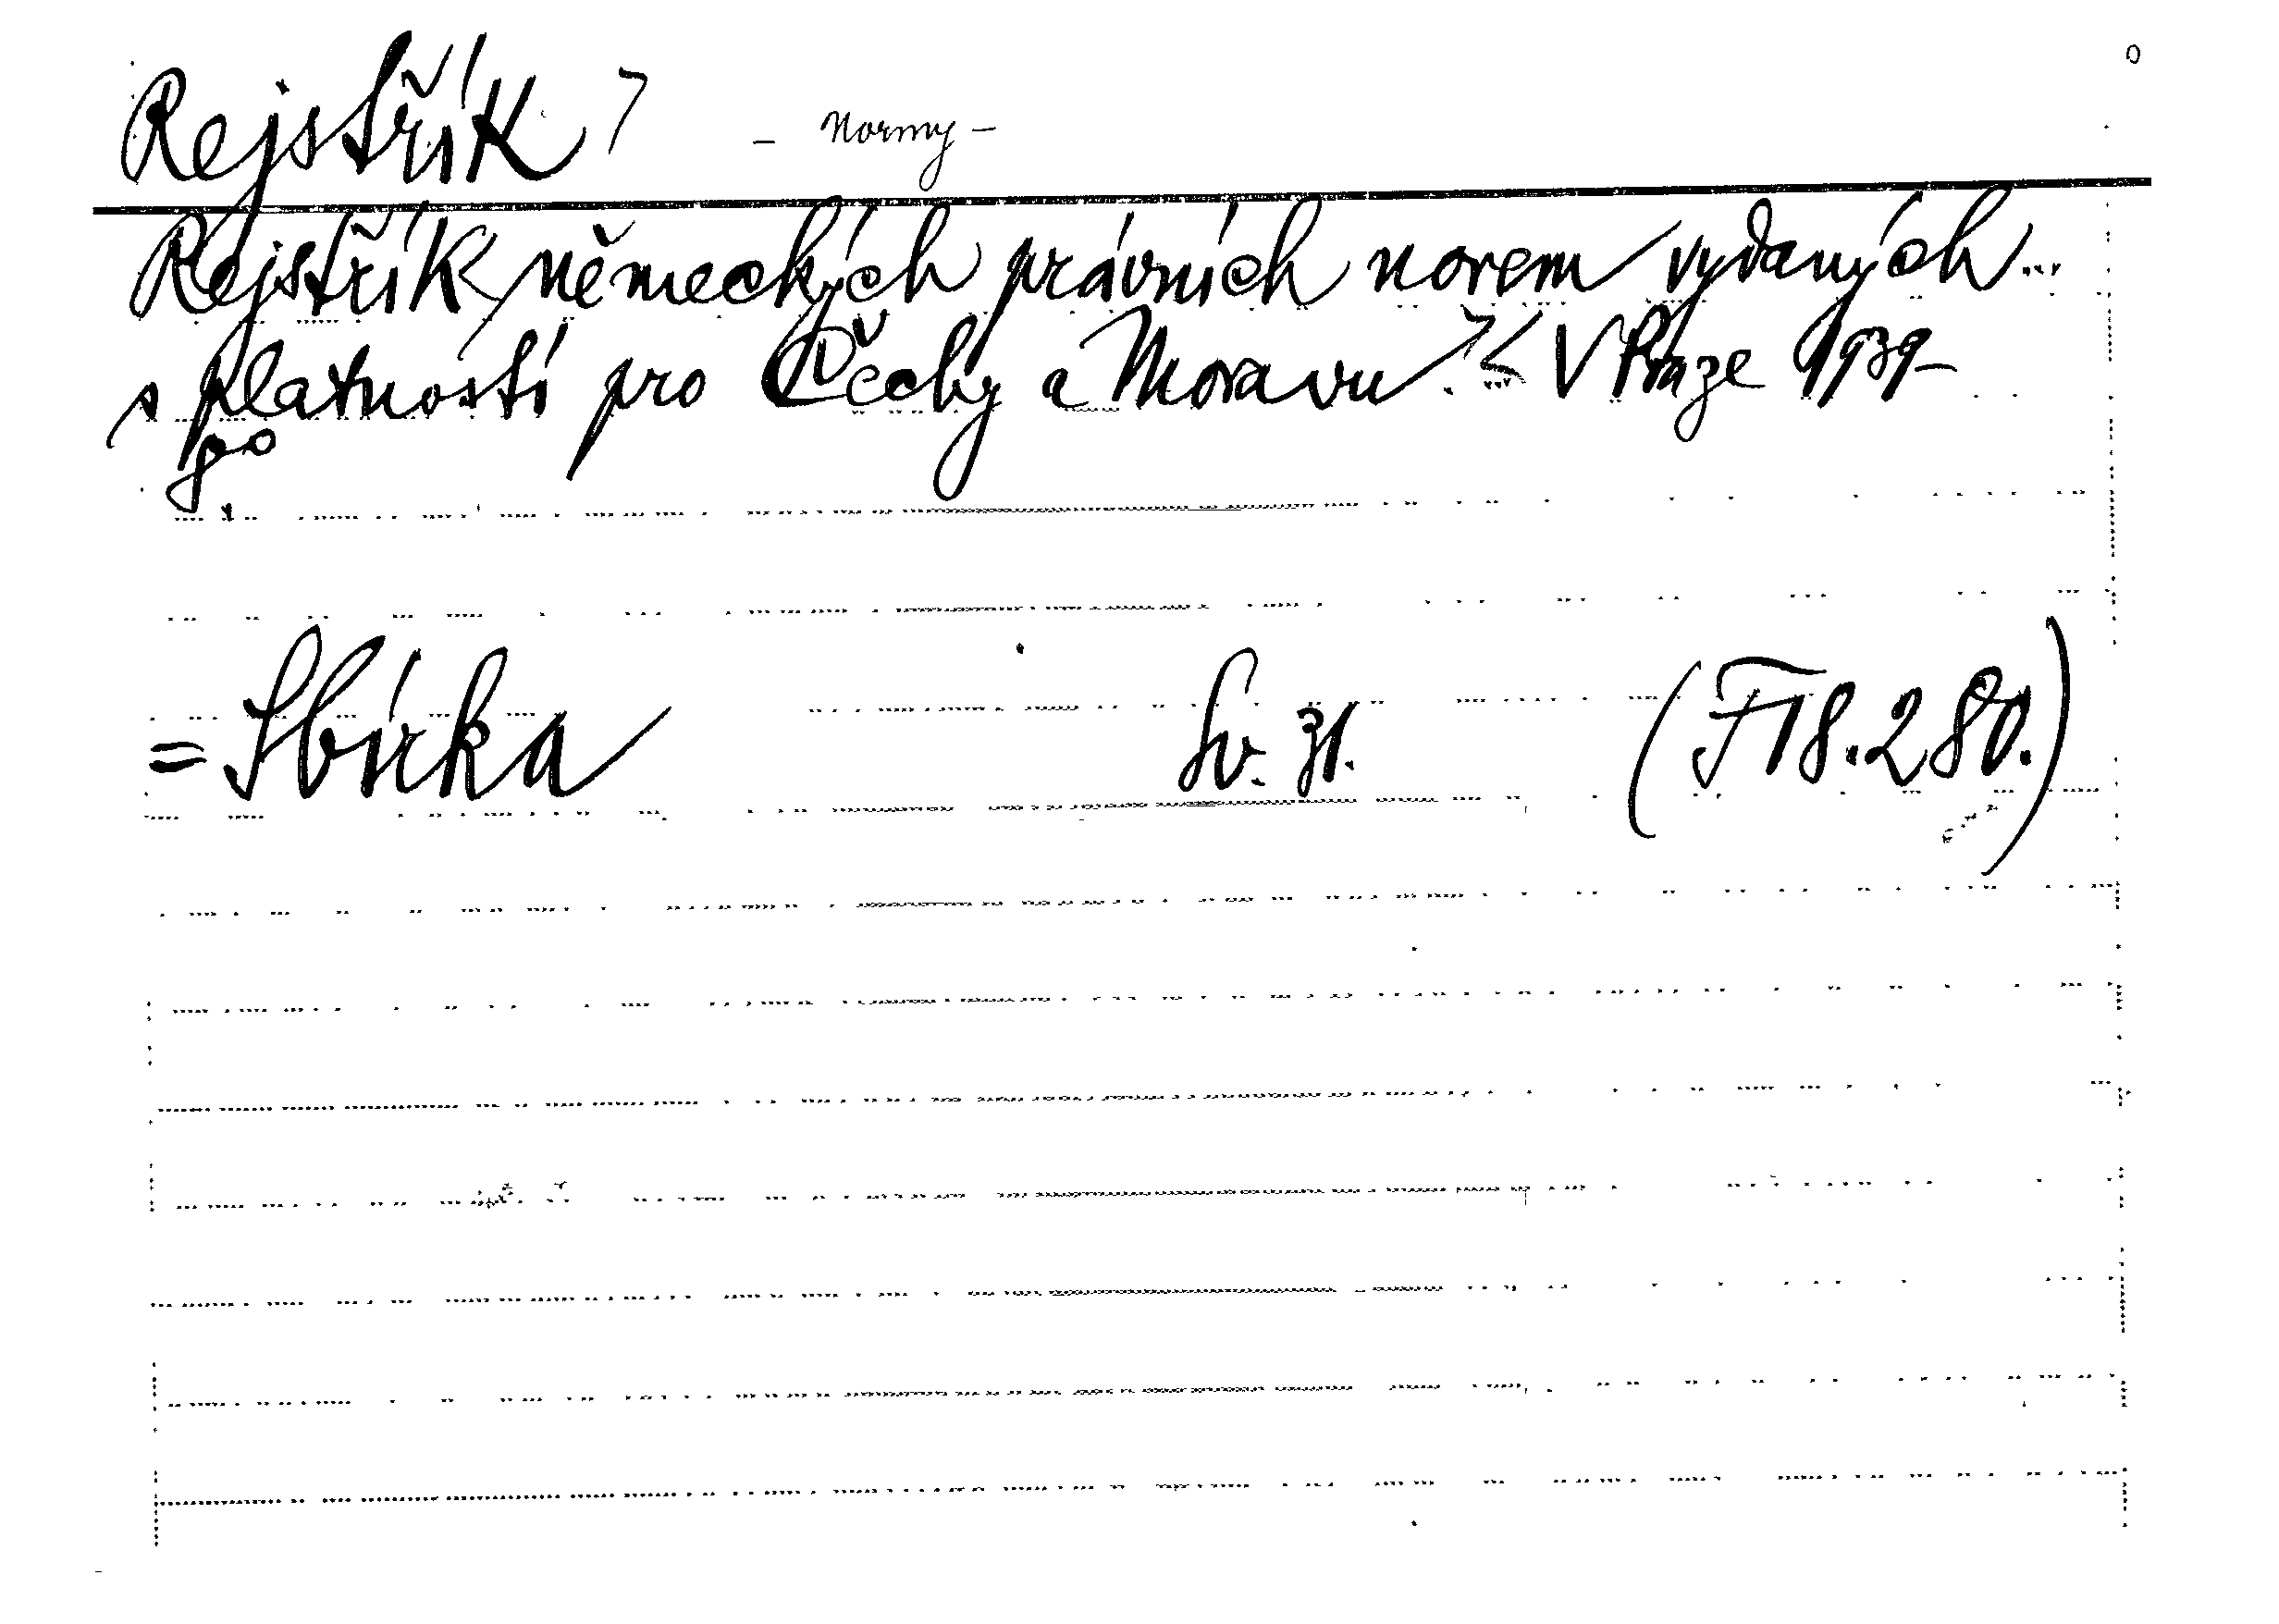 Rejstřík - Normy -
Rejstřík německých právních norem vydaných...
s platností pro Čechy a Moravu. V Praze 1939-
8°.
= Sbírka Sv. 31. (F18.280.)